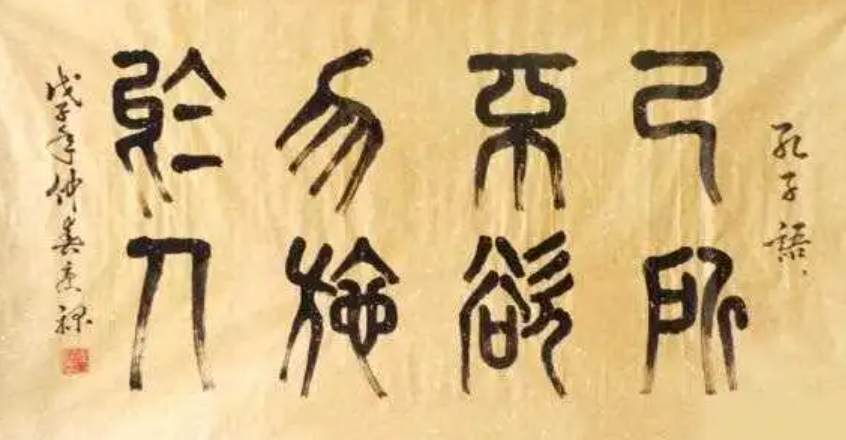 孔子語
己所
不欲
勿施
於人
戊子年仲春